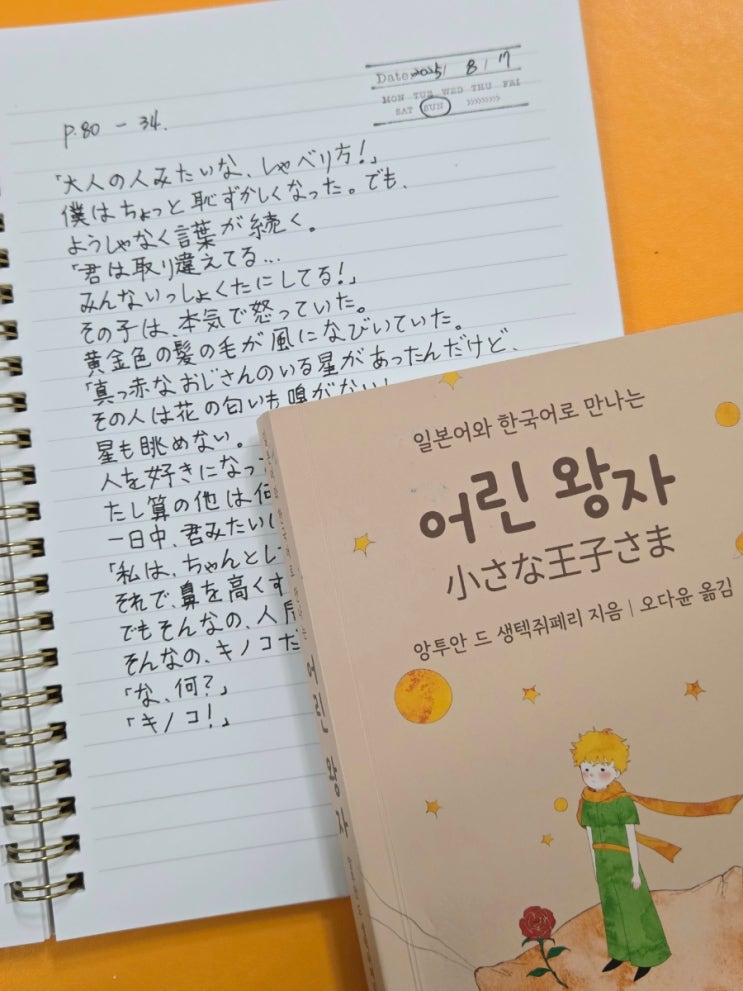 Date 2025/ 8 / 17
MON TUE WED THU FRI
SAT SUN >>>>>>>>>
P.80 - 34.
「大人の人みたいな、しゃべり方！」
僕はちょっと恥ずかしくなった。でも、
ようしゃなく言葉が続く。
「君は取り違えてる...
みんないっしょくたにしてる！」
その子は、本気で怒っていた。
黄金色の髪の毛が風になびいていた。
「真っ赤なおじさんのいる星があったんだけど、
その人は花の匂いも嗅がない！
星も眺めない。
人を好きになっ
たし算の他は何
一日中、君みたいに
「私は、ちゃんとし
それで、鼻を高くす
でもそんなの、人
そんなの、キノコだ
「な、何？」
「キノコ！」
일본어와 한국어로 만나는
어린 왕자
小さな王子さま
앙투안 드 생텍쥐페리 지음 | 오다윤 옮김
일본어와 한국어로 만나는 어린 왕자